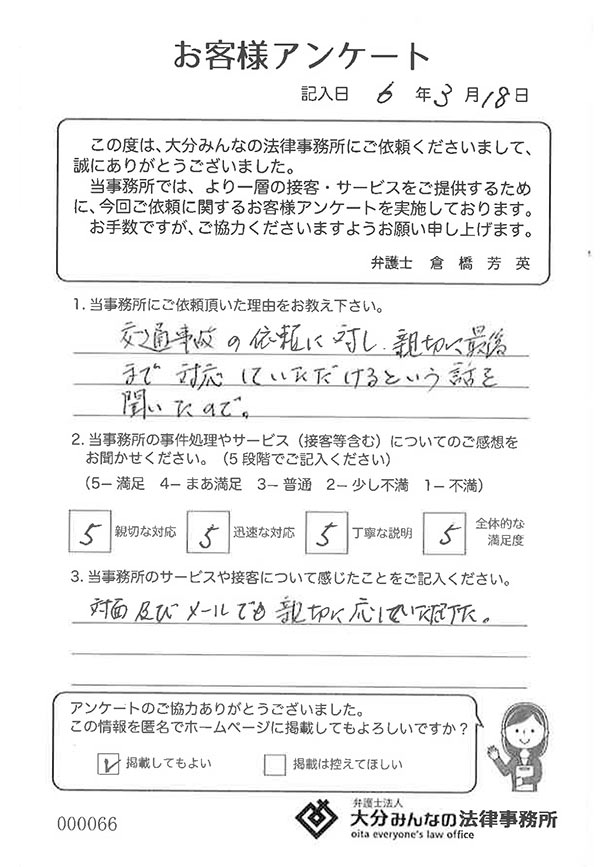 お客様アンケート
記入日 6 年 3 月 18 日
この度は、大分みんなの法律事務所にご依頼くださいまして、
誠にありがとうございました。
当事務所では、より一層の接客・サービスをご提供するため
に、今回ご依頼に関するお客様アンケートを実施しております。
お手数ですが、ご協力くださいますようお願い申し上げます。
弁護士 倉 橋 芳 英
1. 当事務所にご依頼頂いた理由をお教え下さい。
交通事故の依頼に対し、親切に最後
まで対応していただけるという話を
聞いたので。
2. 当事務所の事件処理やサービス（接客等含む）についてのご感想を
お聞かせください。（5 段階でご記入ください）
（5− 満足 4− まあ満足 3− 普通 2− 少し不満 1− 不満）
5 親切な対応 5 迅速な対応 5 丁寧な説明 5 全体的な
満足度
3. 当事務所のサービスや接客について感じたことをご記入ください。
対面及びメールでも親切に応じていただけた。
アンケートのご協力ありがとうございました。
この情報を匿名でホームページに掲載してもよろしいですか？
掲載してもよい 掲載は控えてほしい
000066
弁護士法人
大分みんなの法律事務所
oita everyone's law office